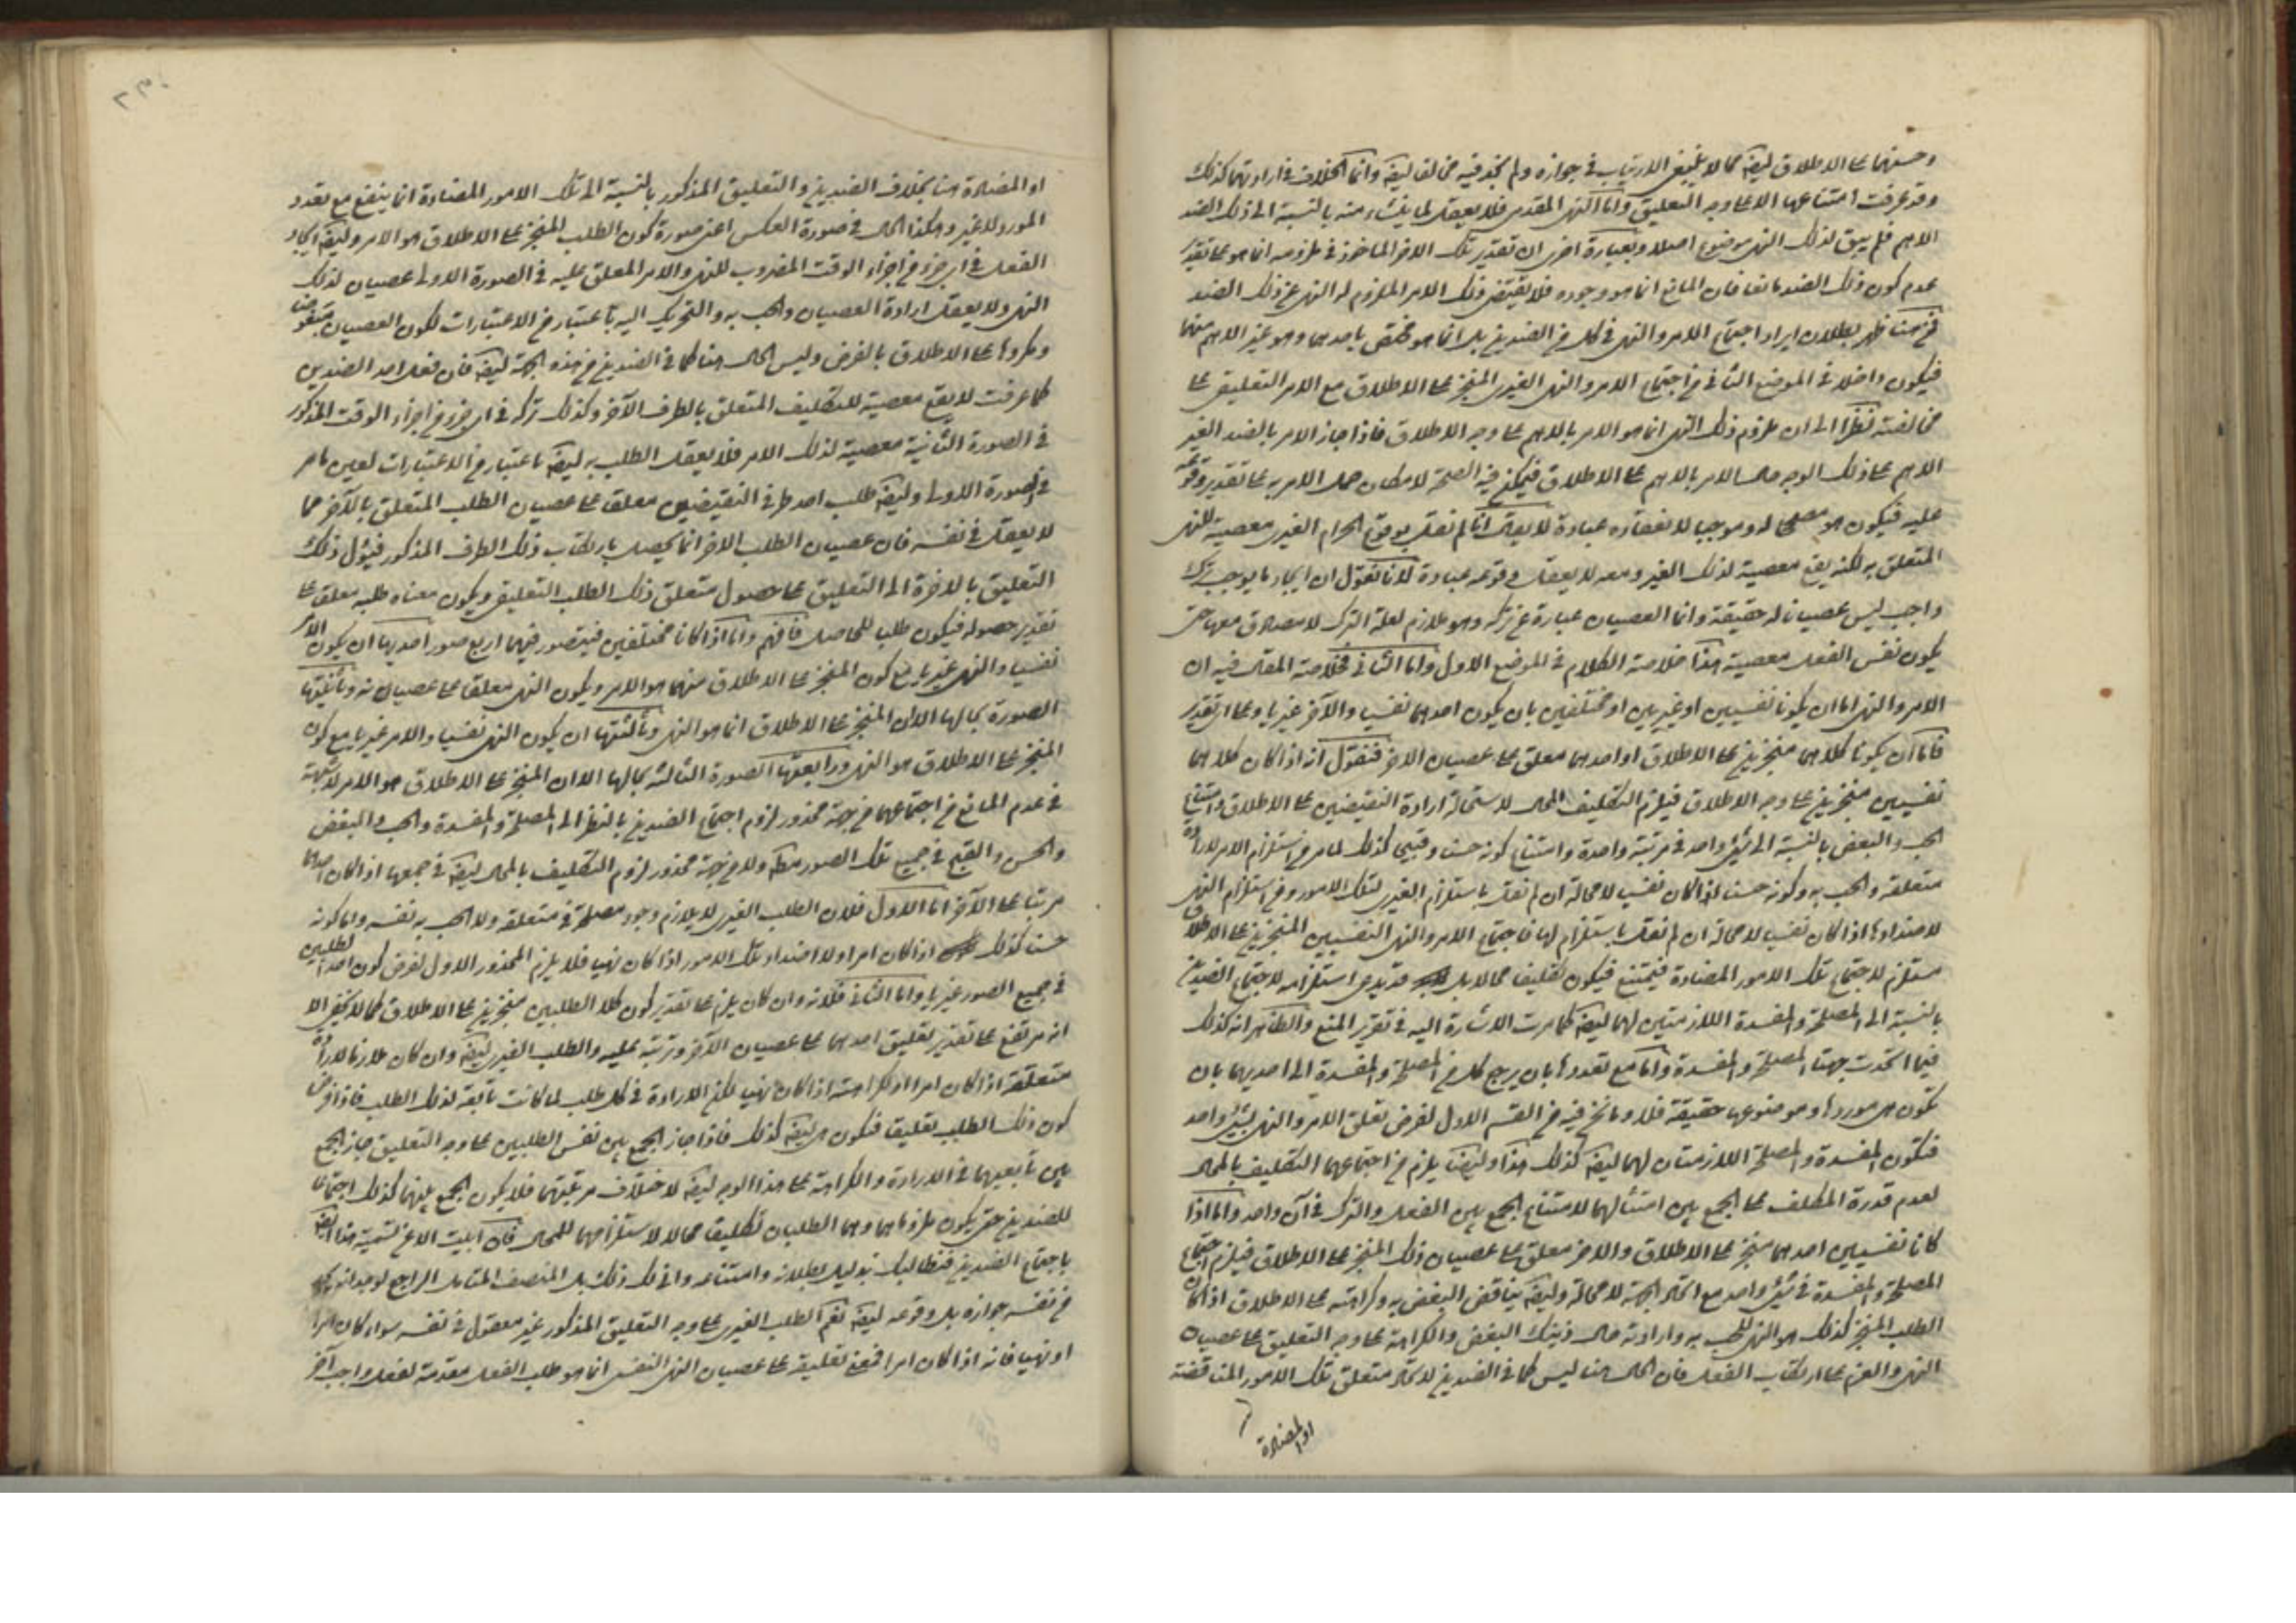 وحسنهما على الاطلاق ايضا مما لا ينبغي الارتياب في جوازه ولم نجد فيه مخالفا ايضا وانما الخلاف في ارادتهما كذلك
وقد عرفت امتناعها الا على وجه التعليق واما النهي المقدمي فلا يعقل لما ينشاء منه بالنسبة الى ذلك الضد
الاهم فلم يبق لذلك النهي موضوع اصلا وبعبارة اخرى ان تقدير تلك الامر الماخوذ في ملزومه انما هو على تقدير
عدم كون ذلك الضد مانعا فان المانع انما هو وجوده فلا يقتضي ذلك الامر الملزوم له النهي عن ذلك الضد
فمن هنا ظهر بطلان ايراد اجتماع الامر والنهي في كل من الضدين بل انما هو مختص باحدهما وهو غير الاهم منهما
فيكون داخلا في الموضع الثاني من اجتماع الامر والنهي الغيري المنجز على الاطلاق مع الامر التعليقي على
مخالفته نظرا الى ان ملزوم ذلك النهي انما هو الامر بالاهم على وجه الاطلاق فاذا جاز الامر بالضد الغير
الاهم على ذلك الوجه حال الامر بالاهم على الاطلاق فيمكن فيه الصحة لامكان حمل الامر به على تقدير وقوعه
عليه فيكون هو مصححا له وموجبا لانعقاده عبادة لا يقال انا لم نقل بوقوع الحرام الغيري معصية للنهي
المتعلق به لكنه يقع معصية لذلك الغير ومعه لا يعقل وقوعه عبادة لانا نقول ان ايجاد ما يوجب ترك
واجب ليس عصيانا له حقيقة وانما العصيان عبارة عن تركه وهو ملازم لعلة الترك لا مصادق معها حتى
يكون نفس الفعل معصية هذا خلاصة الكلام في الموضع الاول واما الثاني فخلاصة المقال فيه ان
الامر والنهي اما ان يكونا نفسيين او غيريين او مختلفين بان يكون احدهما نفسيا والآخر غيريا وعلى اي تقدير
فاما ان يكونا كلاهما منجزين على الاطلاق او احدهما معلق على عصيان الاخر فنقول انه اذا كان كلاهما
نفسيين منجزين على وجه الاطلاق فيلزم التكليف المحال لاستحالة ارادة النقيضين على الاطلاق وامتناع
الحب والبغض بالنسبة الى شيئ واحد في مرتبة واحدة وامتناع كونه حسنا وقبيحا كذلك لما مر من استلزام الامر لارادة
متعلقه والحب به وكونه حسنا اذا كان نفسيا لا محالة ان لم نقل باستلزام الغيري لتلك الامور ومن استلزام النهي
لاضدادها اذا كان نفسيا لا محالة ان لم نقل باستلزام لها فاجتماع الامر والنهي النفسيين المنجزين على الاطلاق
مستلزم لاجتماع تلك الامور المضادة فيمتنع فيكون تكليفا محالا بل قد يدعى استلزامه لاجتماع الضدين
بالنسبة الى المصلحة والمفسدة اللازمتين لهما ايضا كما مرت الاشارة اليه في تقرير المنع والظاهر انه كذلك
فيما اتحدت جهتا المصلحة والمفسدة واما مع تعددها بان يرجع كل من المصلحة والمفسدة الى احديهما بان
تكون هي موردها وموضوعها حقيقة فلا وما نحن فيه من القسم الاول لفرض تعلق الامر والنهي بشيئ واحد
فتكون المفسدة والمصلحة اللازمتان لهما ايضا كذلك هذا وايضا يلزم من اجتماعهما التكليف بالمحال
لعدم قدرة المكلف على الجمع بين امتثالهما لامتناع الجمع بين الفعل والترك في آن واحد واما اذا
كانا نفسيين احدهما منجز على الاطلاق والاخر معلق على عصيان ذلك المنجز على الاطلاق فيلزم اجتماع
المصلحة والمفسدة في شيئ واحد مع اتحاد الجهة لا محالة وايضا يناقض البغض به وكراهته على الاطلاق اذا كان
الطلب المنجز كذلك هو النهي للحب به وارادته حال ذينك البغض والكراهة على وجه التعليق على عصيان
النهي والعزم على ارتكاب الفعل فان الحال هنا ليس كما في الضدين لاتحاد متعلق تلك الامور المتناقضة
او المضادة
او المضادة هنا بخلاف الضدين والتعليق المذكور بالنسبة الى تلك الامور المضادة انما ينفع مع تعدد
المورد لا غير وهكذا الحال في صورة العكس اعني صورة كون الطلب المنجز على الاطلاق هو الامر وايضا ايجاد
الفعل في اي جزء من اجزاء الوقت المضروب للنهي والامر المعلق عليه في الصورة الاولى عصيان لذلك
النهي ولا يعقل ارادة العصيان والحب به والتحريك اليه باعتبار من الاعتبارات لكون العصيان مبغوضا
ومكروها على الاطلاق بالفرض وليس الحال هنا كما في الضدين من هذه الجهة ايضا فان فعل احد الضدين
كما عرفت لا يقع معصية للتكليف المتعلق بالطرف الآخر وكذلك تركه في اي جزء من اجزاء الوقت المذكور
في الصورة الثانية معصية لذلك الامر فلا يعقل الطلب به ايضا باعتبار من الاعتبارات لعين ما مر
في الصورة الاولى وايضا طلب احد طرفي النقيضين معلقا على عصيان الطلب المتعلق بالآخر مما
لا يعقل في نفسه فان عصيان الطلب الاخر انما يحصل بارتكاب ذلك الطرف المذكور فيؤل ذلك
التعليق بالاخرة الى التعليق على حصول متعلق ذلك الطلب التعليقي ويكون معناه طلبه معلقا على
تقدير حصوله فيكون طلبا للحاصل فافهم واما اذا كانا مختلفين فيتصور فيهما اربع صور احديها ان يكون الامر
نفسيا والنهي غيريا مع كون المنجز على الاطلاق منهما هو الامر ويكون النهي معلقا على عصيانه وثانيتها
الصورة بحالها الا ان المنجز على الاطلاق انما هو النهي وثالثتها ان يكون النهي نفسيا والامر غيريا مع كون
المنجز على الاطلاق هو النهي ورابعتها الصورة الثالثة بحالها الا ان المنجز على الاطلاق هو الامر لا شبهة
في عدم المانع من اجتماعهما من جهة محذور لزوم اجتماع الضدين بالنظر الى المصلحة والمفسدة والحب والبغض
والحسن والقبح في جميع تلك الصور مطلقا ولا من جهة محذور لزوم التكليف بالمحال ايضا في جميعها اذا كان احدهما
مرتبا على الآخر اما الاول فلان الطلب الغيري لا يلازم وجود مصلحة في متعلقه ولا الحب به نفسه ولا كونه
حسنا كذلك اذا كان امرا ولا اضداد تلك الامور اذا كان نهيا فلا يلزم المحذور الاول لفرض كون احد الطلبين
في جميع الصور غيريا واما الثاني فلانه وان كان يلزم على تقدير كون كلا الطلبين منجزين على الاطلاق كما لا يخفى الا
انه مرتفع على تقدير تعليق احدهما على عصيان الآخر وترتبه عليه والطلب الغيري ايضا وان كان ملازما لارادة
متعلقه اذا كان امرا او كراهته اذا كان نهيا لكن الارادة في كل طلب لما كانت تابعة لذلك الطلب فاذا فرض
كون ذلك الطلب تعليقيا فتكون هي ايضا كذلك فاذا جاز الجمع بين نفس الطلبين على وجه التعليق جاز الجمع
بين تابعيهما في الارادة والكراهة على هذا الوجه ايضا لاختلاف مرتبتهما فلا يكون الجمع بينهما كذلك اجتماعا
للضدين حتى يكون ملزوماهما وهما الطلبان تكليفا محالا لاستلزامهما للمحال فان ابيت الا عن تسمية هذا ايضا
باجتماع الضدين فنطالبك بدليل بطلانه وامتناعه وانى لك ذلك بل المنصف المتأمل الراجع لوجدانه يجد
من نفسه جوازه بل وقوعه ايضا نعم الطلب الغيري على وجه التعليق المذكور غير معقول في نفسه سواء كان امرا
او نهيا فانه اذا كان امرا فمعنى تعليقه على عصيان النهي النفسي انما هو طلب الفعل مقدمة لفعل واجب آخر